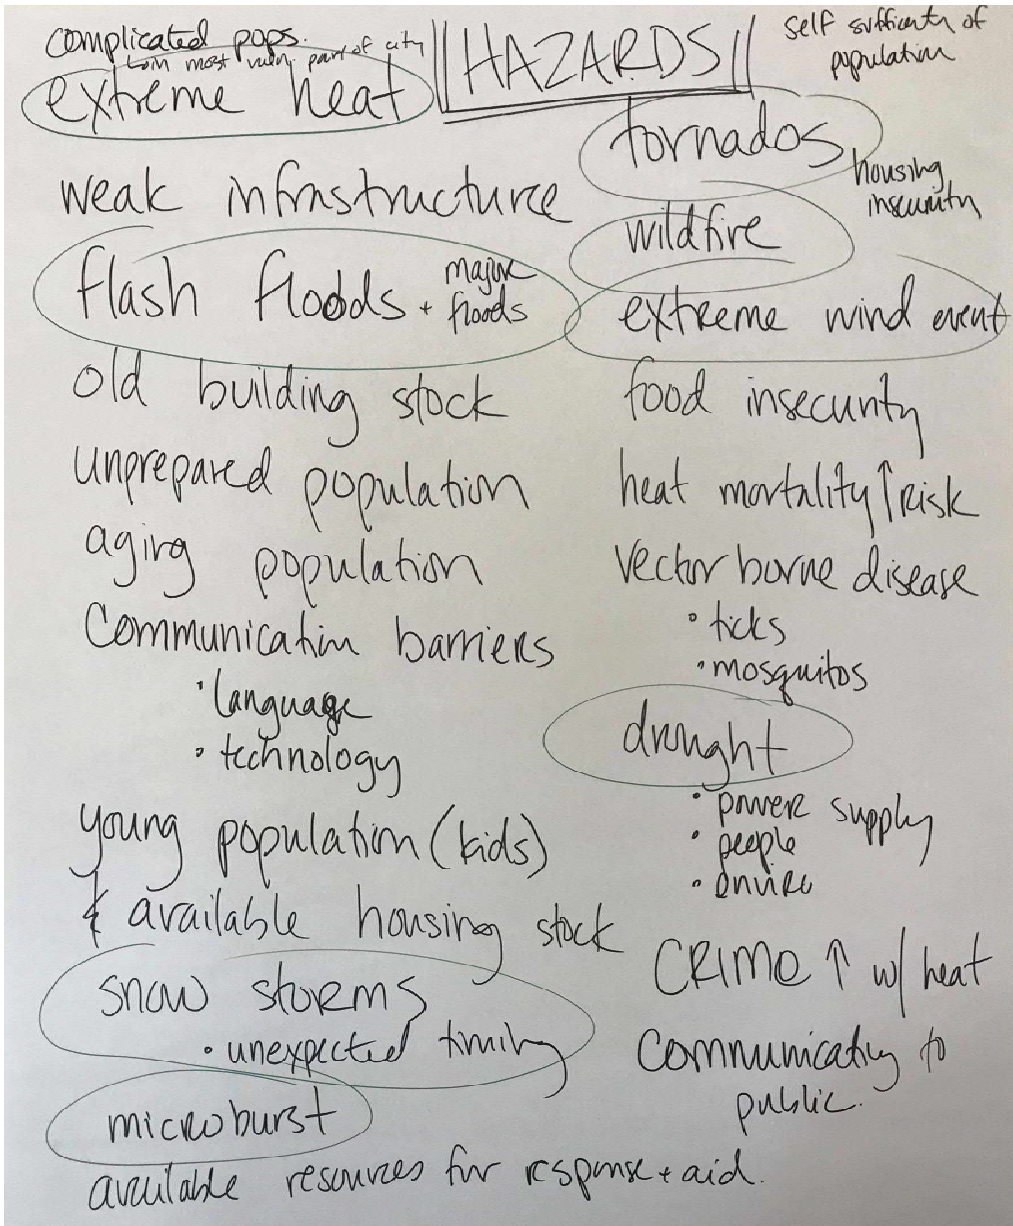 complicated pops.
most vuln. part of city
extreme heat
weak infrastructure
flash floods + major floods
old building stock
unprepared population
aging population
communication barriers
• language
• technology
young population (kids)
available housing stock
snow storms
• unexpected timing
microburst
available resources for response + aid.
||HAZARDS||
self sufficienty of
population
tornados
housing
insecurity
wildfire
extreme wind event
food insecurity
heat mortality ↑ risk
vector borne disease
• ticks
• mosquitos
drought
• power supply
• people
• enviro
CRIME ↑ w/ heat
communicating to
public.